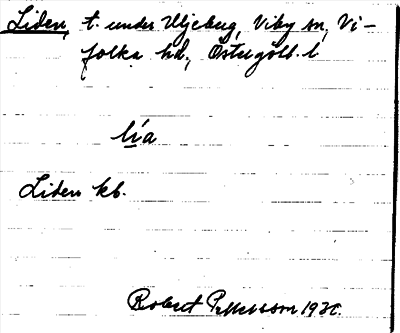 Liden, t. under Uljeberg, Viby sn, Vi-
folka hd., Östergötl. l
lía
Liden kb.
Robert Pettersson 193